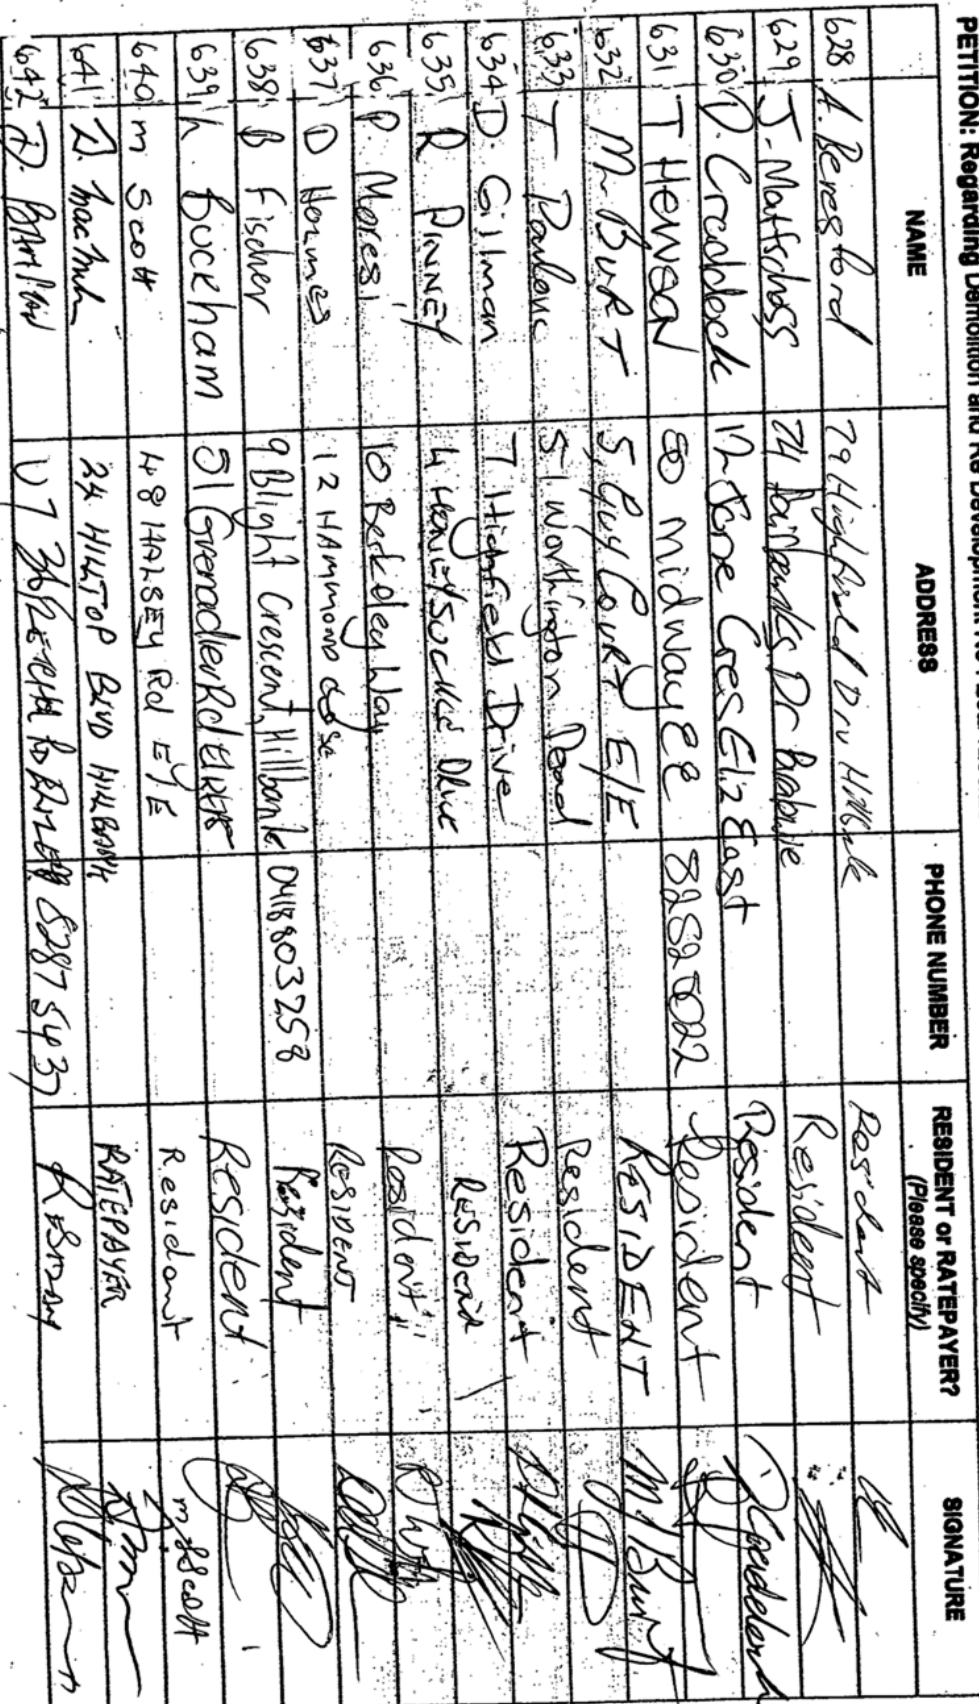 PETITION: Regarding Demolition and Re Development
NAME ADDRESS PHONE NUMBER RESIDENT or RATEPAYER? SIGNATURE
(Please specify)
628 A. Beresford 79 Highfield Drv Hillbank Resident
629 J. Mattschoss 74 Fairbanks Dr Resident
630 D. Craddock 12 Jane Cres Eliz East Resident
631 T HEWSON 80 midway EE 82525022 Resident
632 M. BURT 5, Guy COURT E/E RESIDENT M. J Burt
633 T Pavlovic 51 Worthington Road Resident
634 D. Gilman 7 Highfield Drive Resident
635 R PINNEY 4 HONEYSUCKLE DRIVE RESIDENT
636 P. Moresi 10 Berkeley Way Resident
637 D Hommes 12 HAMMOND close RESIDENT
638 B Fischer 9 Blight Crescent, Hillbank 0418803258 Resident
639 h. Buckham 51 Grenadier Rd Resident
640 m Scott 48 HALSEY Rd E/E Resident m Scott
641 24 HILLTOP BLVD HILLBANK RATEPAYER
642 8287 5437